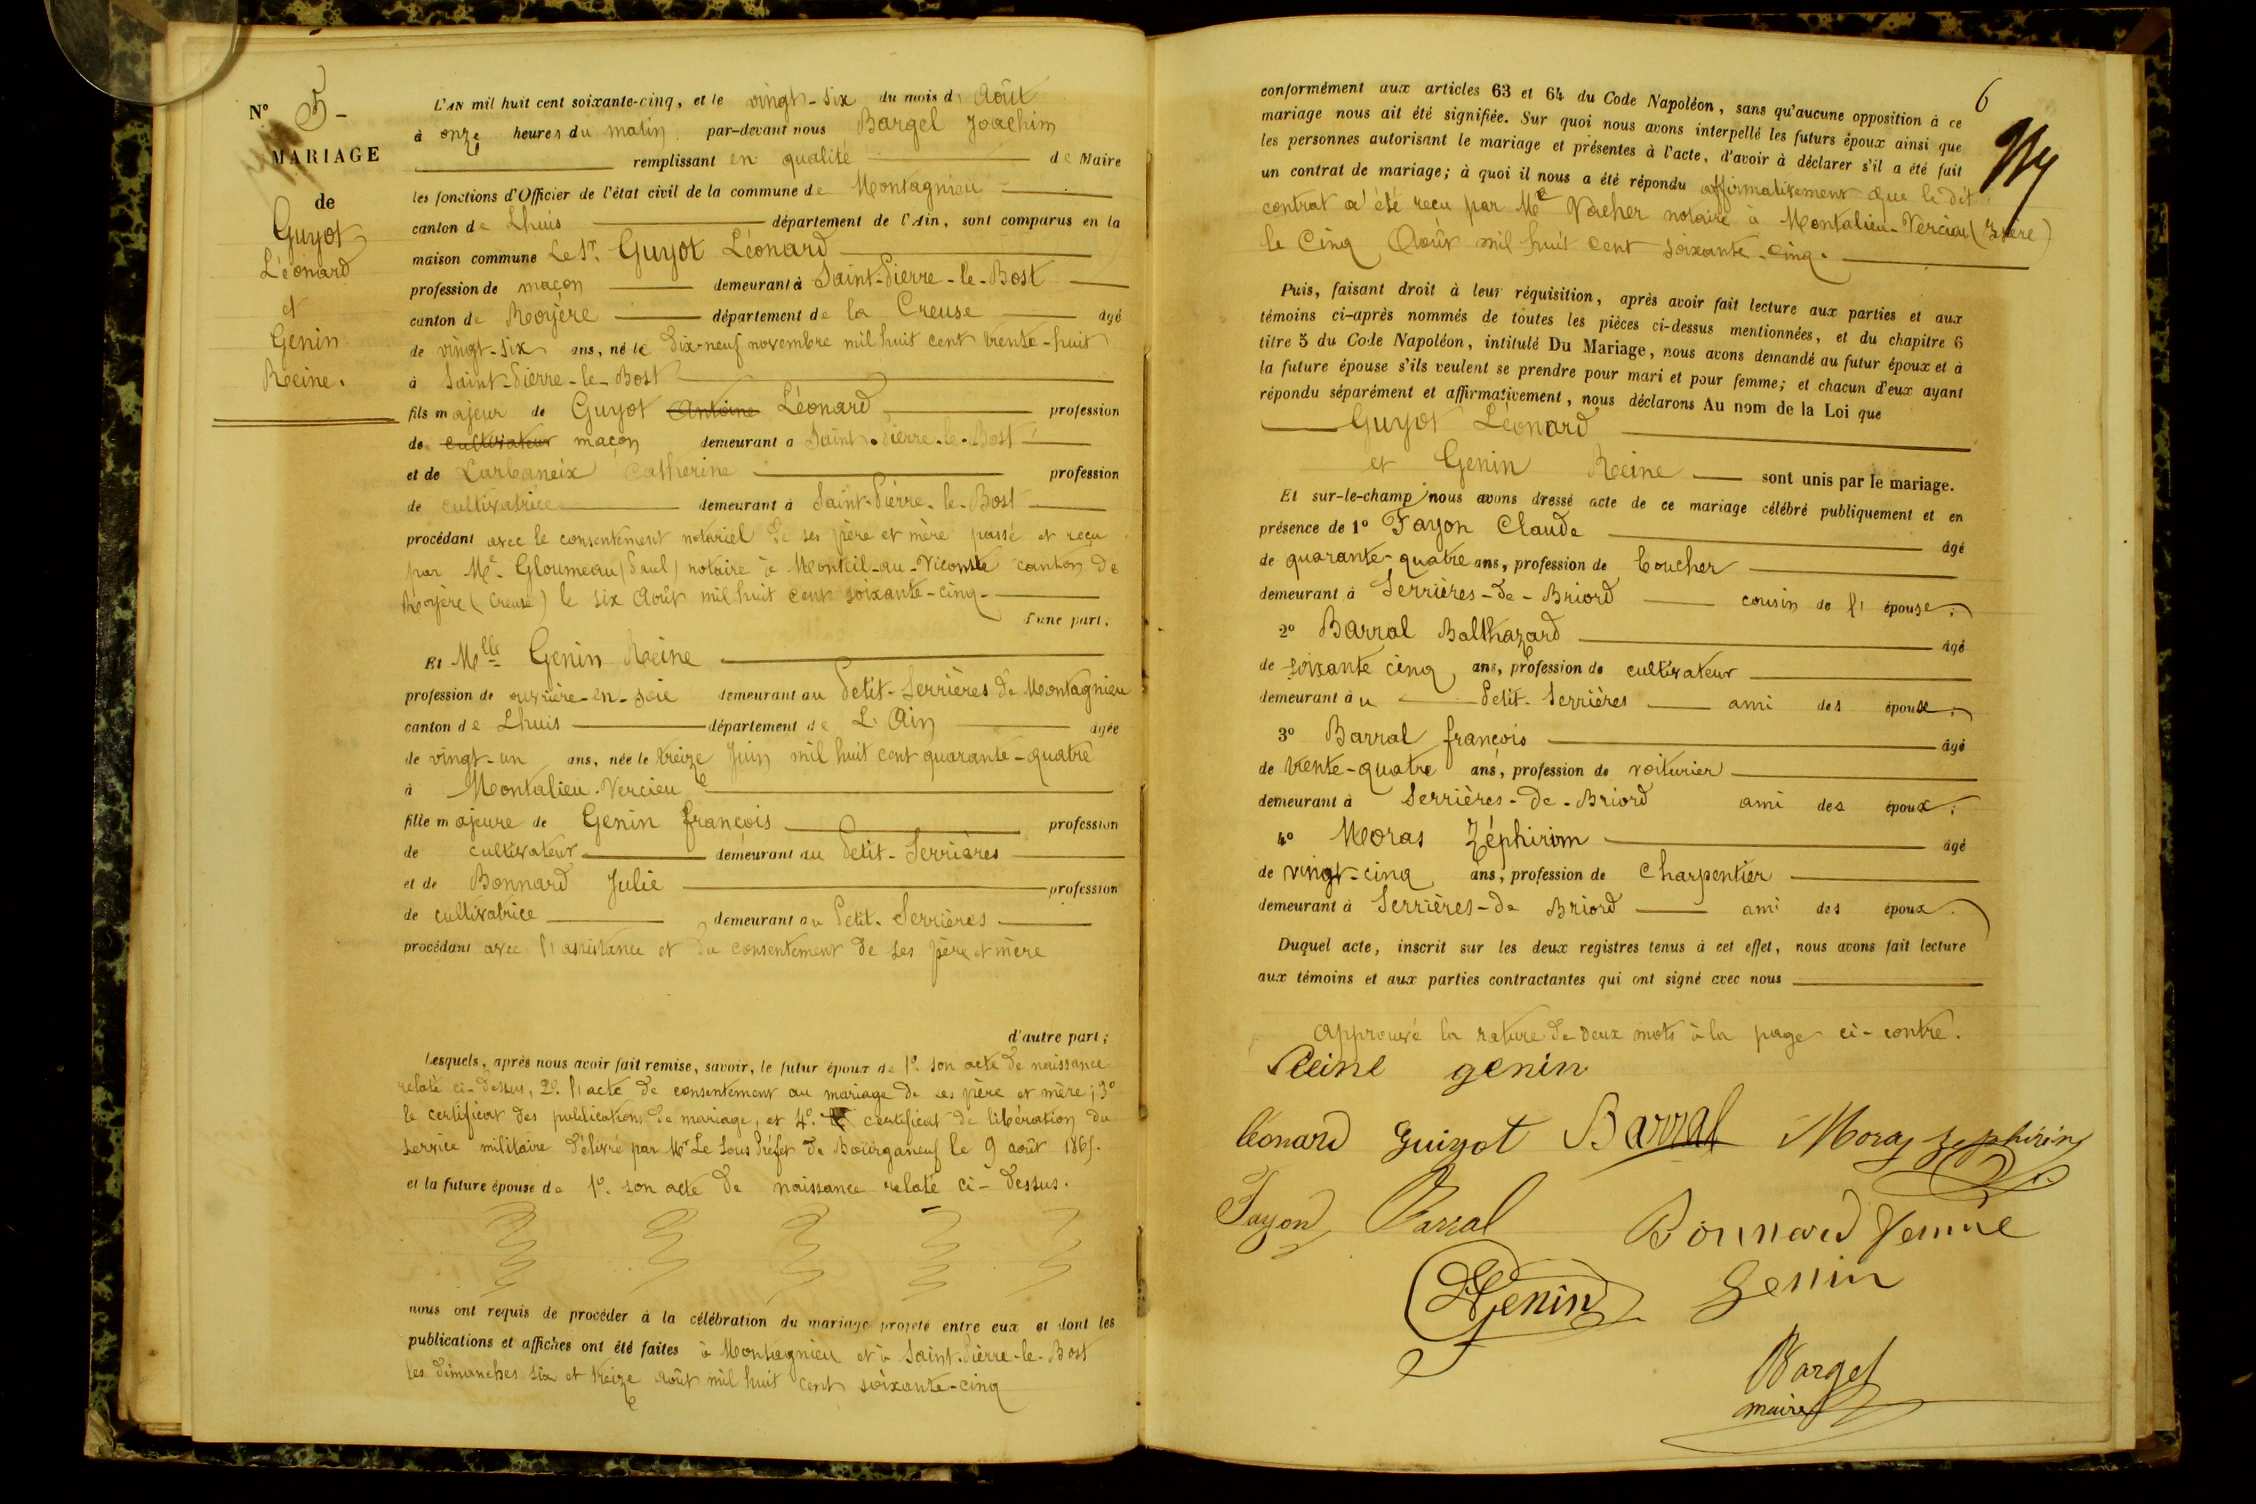 N° 5 -
MARIAGE
de
Guyot
Léonard
et
Genin
Reine.
L'AN mil huit cent soixante-cinq, et le vingt-six du mois d' Août
à onze heures du matin par-devant nous Bargel Joachim
remplissant en qualité de Maire
les fonctions d'Officier de l'état civil de la commune de Montagnieu
canton de Lhuis département de l'Ain, sont comparus en la
maison commune Le Sr. Guyot Léonard
profession de maçon demeurant à Saint-Pierre-le-Bost
canton de Royère département de la Creuse âgé
de vingt-six ans, né le dix-neuf novembre mil huit cent trente-huit
à Saint-Pierre-le-Bost
fils majeur de Guyot Antoine Léonard profession
de cultivateur maçon demeurant à Saint-Pierre-le-Bost
et de Larbaneix Catherine profession
de cultivatrice demeurant à Saint-Pierre-le-Bost
procédant avec le consentement notariel de ses père et mère passé et reçu
par Me. Gloumeau (Paul) notaire à Monteil-au-Vicomte canton de
Royère (Creuse) le six Août mil huit cent soixante-cinq -
d'une part,
Et Melle Genin Reine
profession de ouvrière-en-soie demeurant au Petit-Serrières de Montagnieu
canton de Lhuis département de L'Ain âgée
de vingt-un ans, née le treize Juin mil huit cent quarante-quatre
à Montalieu-Vercieu
fille majeure de Genin françois profession
de cultivateur demeurant au Petit-Serrières
et de Bonnard Julie profession
de cultivatrice demeurant au Petit-Serrières
procédant avec l'assistance et du consentement de ses père et mère
d'autre part;
Lesquels, après nous avoir fait remise, savoir, le futur époux de 1°. son acte de naissance
relaté ci-dessus, 2°. l'acte de consentement au mariage de ses père et mère; 3°
le certificat des publications de mariage, et 4°. certificat de libération du
service militaire délivré par Mr Le Sous Préfet de Bourganeuf le 9 août 1865.
et la future épouse de 1°. son acte de naissance relaté ci-dessus.
nous ont requis de procéder à la célébration du mariage projeté entre eux et dont les
publications et affiches ont été faites à Montagnieu et à Saint-Pierre-le-Bost
les dimanches six et treize août mil huit cent soixante-cinq
6
conformément aux articles 63 et 64 du Code Napoléon, sans qu'aucune opposition à ce
mariage nous ait été signifiée. Sur quoi nous avons interpellé les futurs époux ainsi que
les personnes autorisant le mariage et présentes à l'acte, d'avoir à déclarer s'il a été fait
un contrat de mariage; à quoi il nous a été répondu affirmativement que le dit
contrat a été reçu par Me Vacher notaire à Montalieu-Vercieu (Isère)
le Cinq Août mil huit cent soixante-cinq.
Puis, faisant droit à leur réquisition, après avoir fait lecture aux parties et aux
témoins ci-après nommés de toutes les pièces ci-dessus mentionnées, et du chapitre 6
titre 5 du Code Napoléon, intitulé Du Mariage, nous avons demandé au futur époux et à
la future épouse s'ils veulent se prendre pour mari et pour femme; et chacun d'eux ayant
répondu séparément et affirmativement, nous déclarons Au nom de la Loi que
Guyot Léonard
et Genin Reine sont unis par le mariage.
Et sur-le-champ nous avons dressé acte de ce mariage célébré publiquement et en
présence de 1° Fayon Claude âgé
de quarante-quatre ans, profession de boucher
demeurant à Serrières-de-Briord cousin de l' épouse;
2° Barral Balthazard âgé
de soixante cinq ans, profession de cultivateur
demeurant à u Petit-Serrières ami des époux;
3° Barral françois âgé
de trente-quatre ans, profession de voiturier
demeurant à Serrières-de-Briord ami des époux;
4° Moras Zéphirim âgé
de vingt-cinq ans, profession de Charpentier
demeurant à Serrières-de Briord ami des époux.
Duquel acte, inscrit sur les deux registres tenus à cet effet, nous avons fait lecture
aux témoins et aux parties contractantes qui ont signé avec nous
approuvé la rature de deux mots à la page ci-contre.
Reine genin
léonard Guiyot Barral Moras zephirin
Fayon Barral Bonnard femme
Genin Genin
Bargel
maire